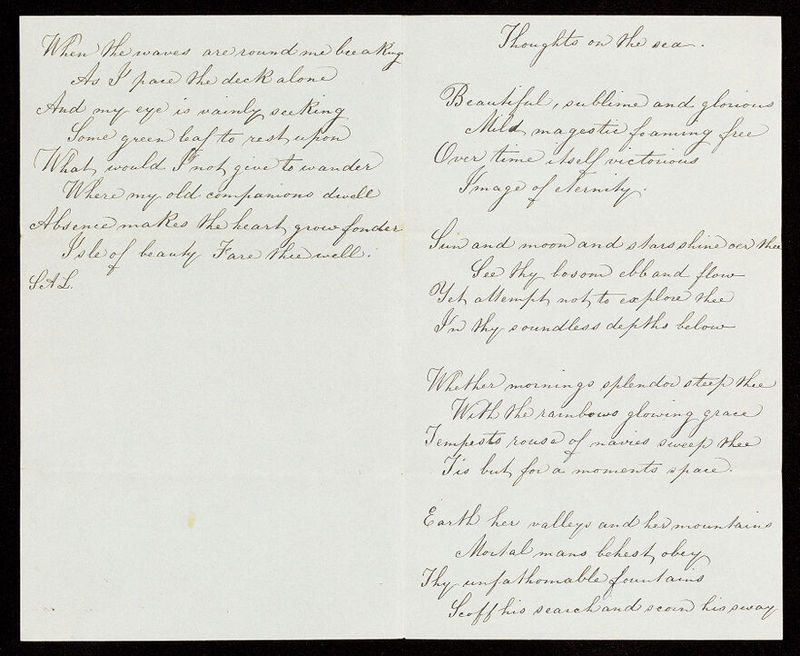 When the waves are round me breaking
As I pace the deck alone
And my eye is vainly seeking
Some green leaf to rest upon
What would I not give to wander
Where my old companions dwell
Absence makes the heart grow fonder
Isle of beauty Fare thee well.
S A L.
Thoughts on the sea.
Beautiful, sublime and glorious
Mild magestic foaming free
Over time itself victorious
Image of eternity.
Sun and moon and stars shine oer thee
See thy bosom ebb and flow
Yet attempt not to explore thee
In thy soundless depths below
Whether mornings splendor steep thee
With the rainbows glowing grace
Tempests rouse of navies sweep thee
Tis but for a moments space.
Earth her valleys and her mountains
Mortal mans behest obey
Thy unfathomable fountains
Scoff his search and scorn his sway